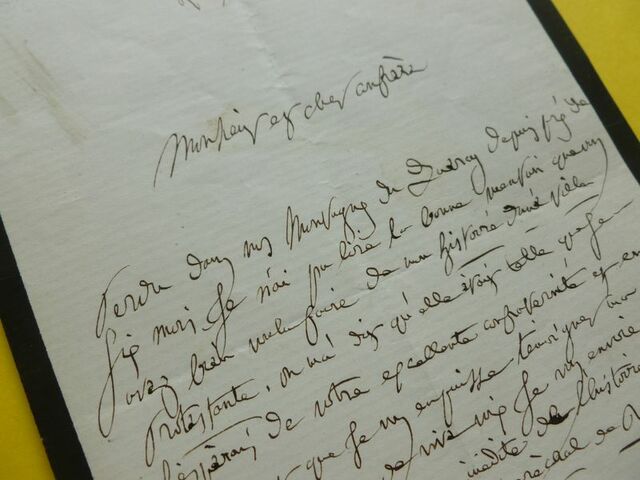 Monsieur et cher confrère
Perdu dans nos Montagnes du Quercy depuis près de
six mois, je n'ai pu lire la bonne mention que vous
avez bien voulu faire de mon histoire d'une ville
Protestante, on m'a dit qu'elle était telle que je
l'espérais de votre excellente confraternité et en
que je vous en puisse témoigner ma
de vive voix je vous envoie
inédite de l'histoire
Maréchal de